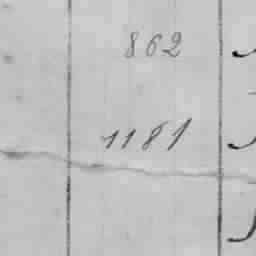 862
1181